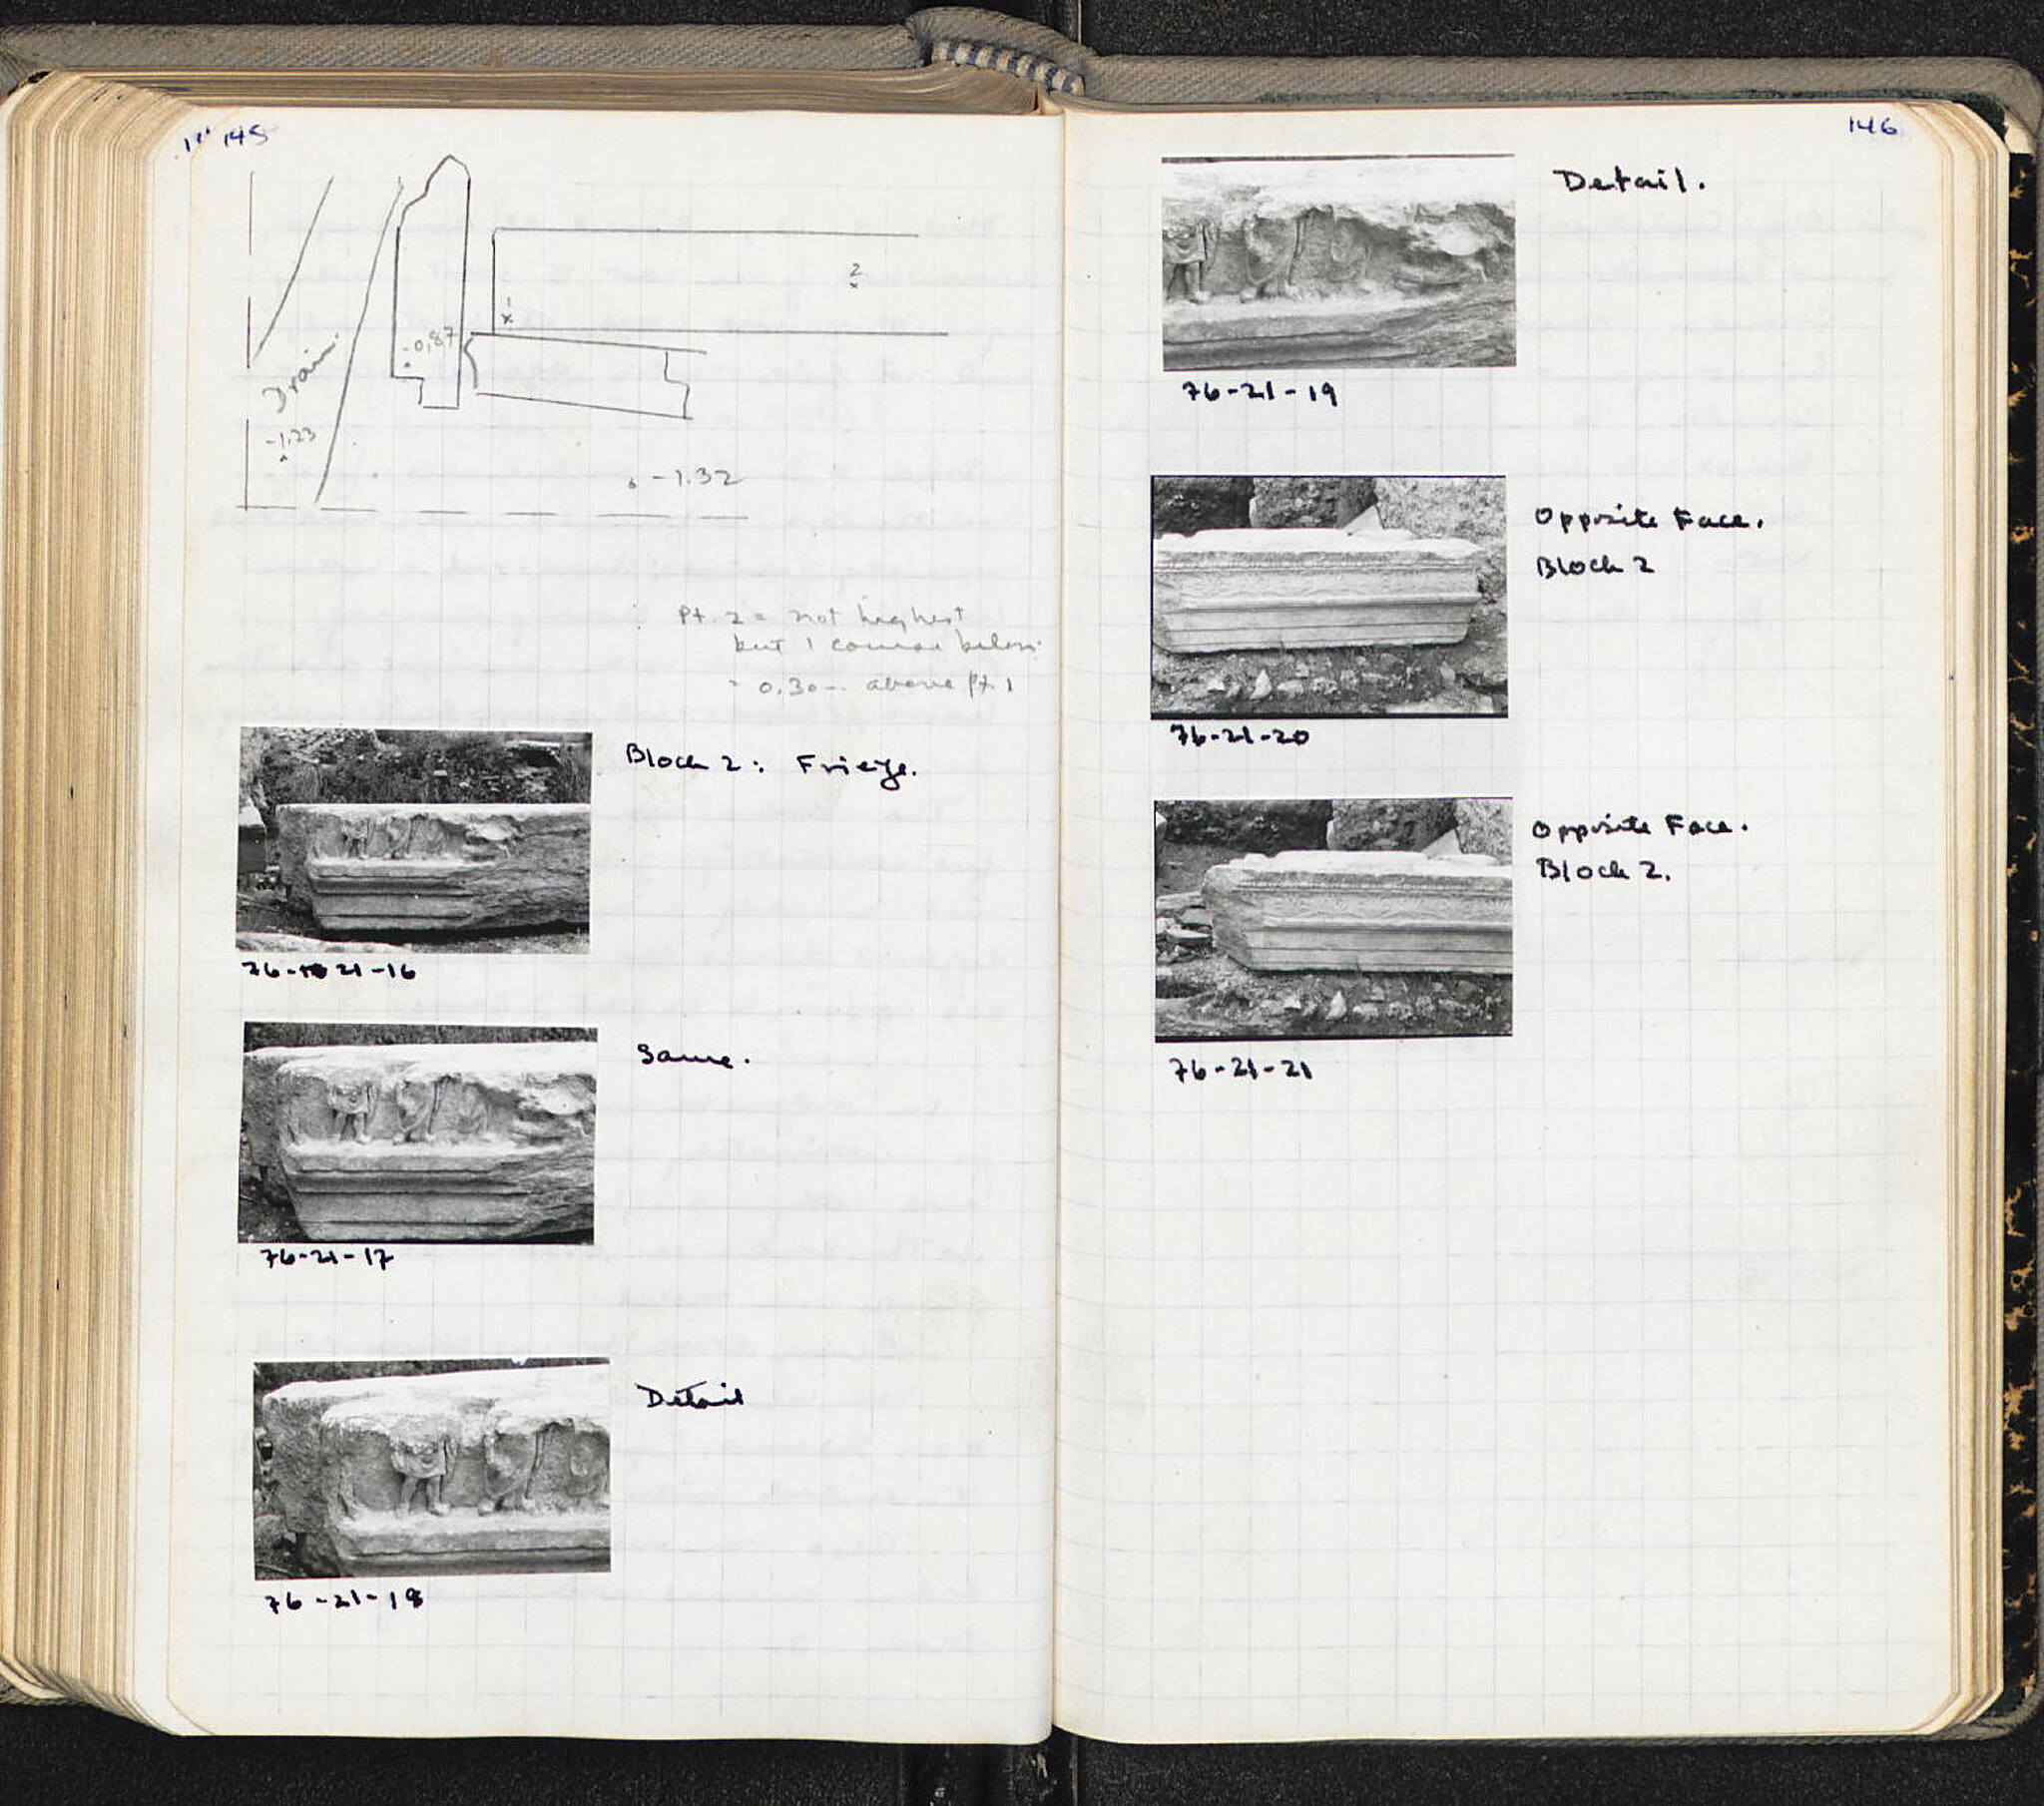 145
1
2
-0,87
Drain.
-1.23
-1.32
Pt. 2 = not highest
but 1 course below
= 0.30 above Pt. 1
Block 2: Frieze.
76-21-16
Same.
76-21-17
Detail
76-21-18
146
Detail.
76-21-19
Opposite Face.
Block 2
76-21-20
Opposite Face.
Block 2.
76-21-21